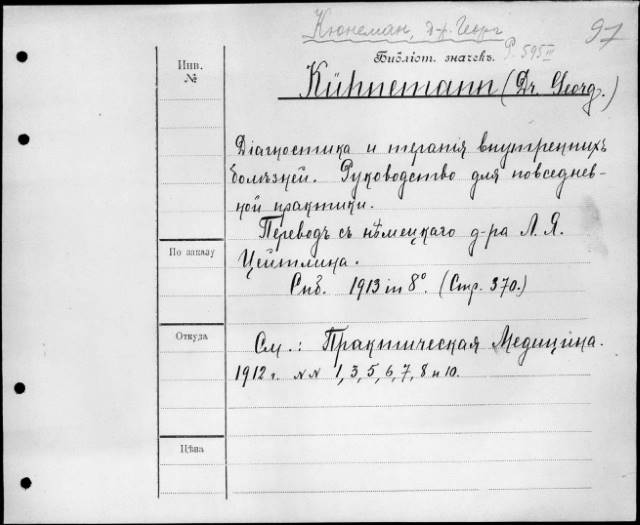 Кюнеман, д-р. Георг
97
Библіот. значекъ.
P. 595 III
Инв.
№
Kühnemann (Dr. Georg.)
Діагностика и терапія внутреннихъ
болѣзней. Руководство для повседнев-
ной практики.
Переводъ съ нѣмецкаго д-ра Л. Я.
По заказу
Цейтлина.
Спб. 1913 in 8°. (Стр. 370.)
Откуда
См.: Практическая Медицина.
1912 г. №№ 1, 3, 5, 6, 7, 8 и 10.
Цѣна